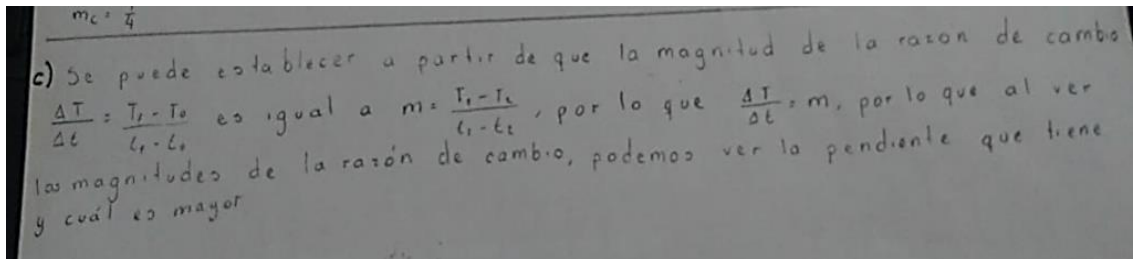 mc = 1/4
c) Se puede establecer a partir de que la magnitud de la razon de cambio
ΔT/Δt = T₁ - T₀/t₁ - t₀ es igual a m = T₁ - T₂/t₁ - t₂, por lo que ΔT/Δt = m, por lo que al ver
las magnitudes de la razón de cambio, podemos ver la pendiente que tiene
y cuál es mayor